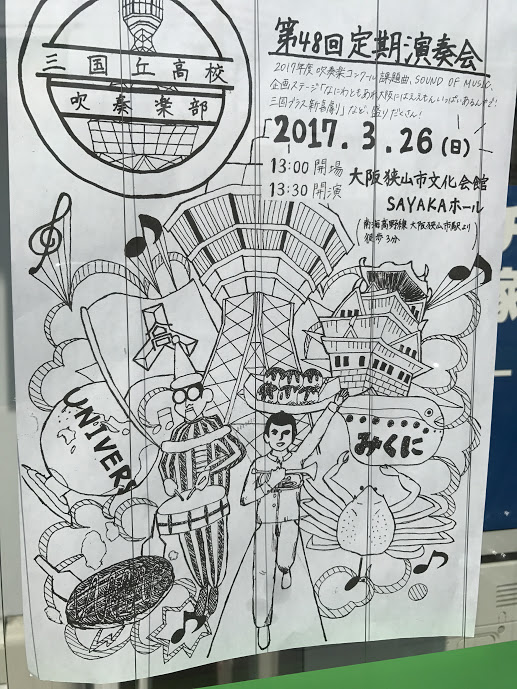 三国丘高校
吹奏楽部
第48回定期演奏会
2017年度 吹奏楽コンクール課題曲、SOUND OF MUSIC、
企画ステージ「なにわともあれ大阪にはええもんいっぱいあるんやで!
三国プラス新喜劇」など、盛りだくさん!
2017.3.26(日)
13:00 開場
大阪狭山市文化会館
13:30 開演
SAYAKAホール
(南海高野線 大阪狭山市駅より
徒歩3分)
UNIVERS
みくに